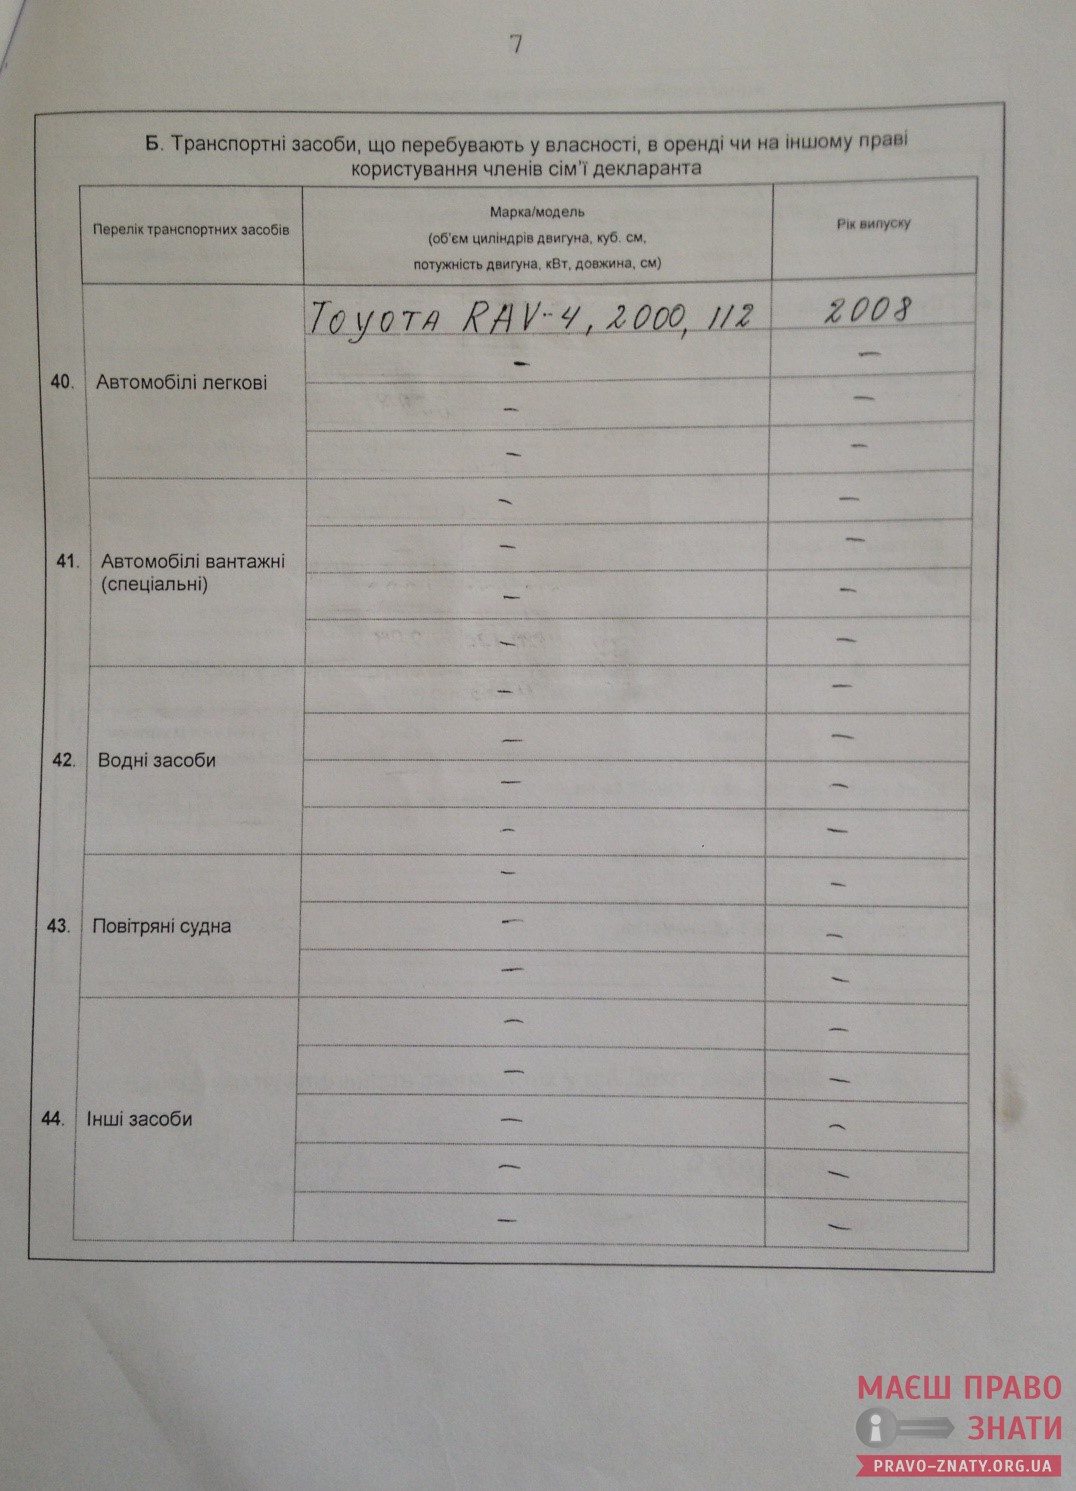 7
Б. Транспортні засоби, що перебувають у власності, в оренді чи на іншому праві
користування членів сім'ї декларанта
Перелік транспортних засобів
Марка/модель
(об'єм циліндрів двигуна, куб. см,
потужність двигуна, кВт, довжина, см)
Рік випуску
40. Автомобілі легкові
Toyota RAV-4, 2000, 112
2008
– –
– –
– –
41. Автомобілі вантажні
(спеціальні)
– –
– –
– –
– –
42. Водні засоби
– –
– –
– –
– –
43. Повітряні судна
– –
– –
– –
44. Інші засоби
– –
– –
– –
– –
– –
МАЄШ ПРАВО
ЗНАТИ
PRAVO-ZNATY.ORG.UA